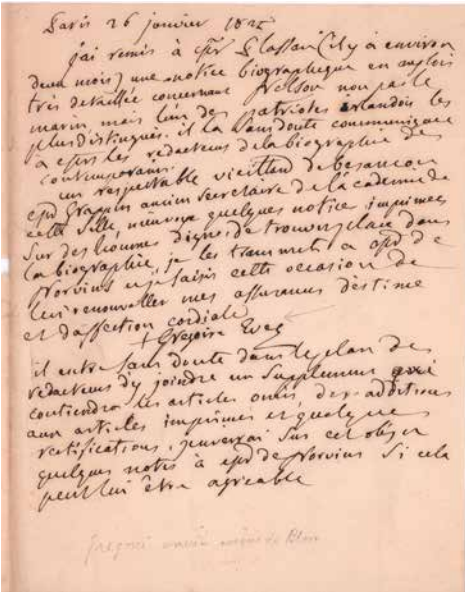 Paris 26 janvier 1825
j'ai remis à mr Flassan (il y a environ
deux mois) une notice biographique en anglois
très detaillée concernant Nelson non pas le
marin, mais l'un des patriotes irlandois les
plus distingués. il l'a sans doute communiquée
à mrs les redacteurs de la biographie des
contemporains
un respectable vieillard de besancon
mr Grappin ancien secretaire de l'academie de
cette ville, m'envoye quelques notice imprimées
sur des hommes dignes de trouver place dans
la biographie, je les transmets a mr de
Norvins et je saisis cette occasion de
lui renouveller mes assurances d'estime
et d'affection cordiale
+ Gregoire Eveq
il entre sans doute dans le plan des
redacteurs d'y joindre un supplement qui
contiendra les articles omis, des additions
aux articles imprimés et quelques
rectifications, j'enverrai sur cet objet
quelques notes à mr de Norvins si cela
peut lui être agreable
Gregoire ancien évêque de Blois